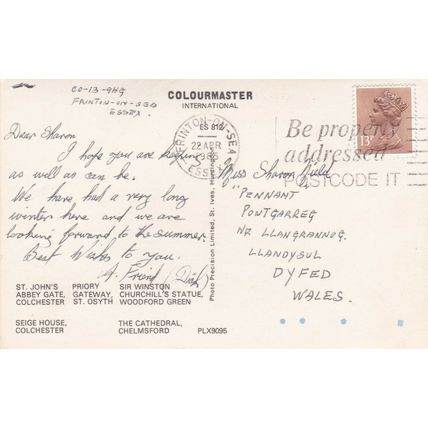 CO-13-9HG
FRINTON-ON-SEA
ESSEX.
COLOURMASTER
INTERNATIONAL
ES 812
Dear Sharon
I hope you are keeping
as well as can be.
We have had a very long
winter here and we are
looking forward to the summer.
Best Wishes to you.
A. Friend (Dick)
ST. JOHN'S ABBEY GATE, COLCHESTER
PRIORY GATEWAY, ST. OSYTH
SIR WINSTON CHURCHILL'S STATUE, WOODFORD GREEN
SEIGE HOUSE, COLCHESTER
THE CATHEDRAL, CHELMSFORD
PLX9095
Photo Precision Limited, St. Ives, Huntingdon
FRINTON-ON-SEA
22 APR
1986
ESSEX
Be properly
addressed
POSTCODE IT
13
Miss Sharon Field
"PENNANT
PONTGARREG
NR LLANGRANNOG.
LLANDYSUL
DYFED
WALES.